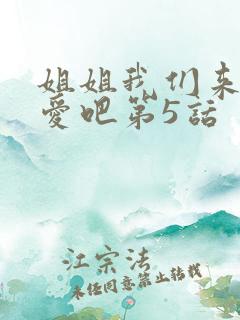 姐姐我们来
爱吧第5話
江宗法
未经同意禁止转载